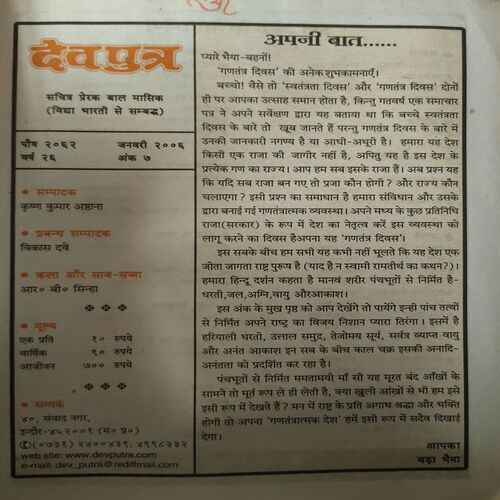 देवपुत्र
सचित्र प्रेरक बाल मासिक
(विद्या भारती से सम्बद्ध)
पौष २०६२ जनवरी २००६
वर्ष २६ अंक ७
सम्पादक
कृष्ण कुमार अष्ठाना
प्रबन्ध सम्पादक
विकास दवे
कला और साज-सज्जा
आर० बी० सिन्हा
मूल्य
एक प्रति १० रुपये
वार्षिक ९० रुपये
आजीवन ७०० रुपये
सम्पर्क
४०, संवाद नगर,
इन्दौर-४५२००१ (म० प्र०)
✆(०७३१) २४००४३९, ४९९८३३२
web site: www.devputra.com
e-mail: dev_putra@rediffmail.com
अपनी बात......
प्यारे भैया-बहनों!
'गणतंत्र दिवस' की अनेक शुभकामनाएँ।
बच्चो! वैसे तो 'स्वतंत्रता दिवस' और 'गणतंत्र दिवस' दोनों
ही पर आपका उत्साह समान होता है, किन्तु गतवर्ष एक समाचार
पत्र ने अपने सर्वेक्षण द्वारा यह बताया था कि बच्चे स्वतंत्रता
दिवस के बारे तो खूब जानते हैं परन्तु गणतंत्र दिवस के बारे में
उनकी जानकारी नगण्य है या आधी-अधूरी है। हमारा यह देश
किसी एक राजा की जागीर नहीं है, अपितु यह है इस देश के
प्रत्येक गण का राज्य। आप हम सब इसके राजा हैं। अब प्रश्न यह
कि यदि सब राजा बन गए तो प्रजा कौन होगी? और राज्य कौन
चलाएगा? इसी प्रश्न का समाधान है हमारा संविधान और उसके
द्वारा बनाई गई गणतंत्रात्मक व्यवस्था। अपने मध्य के कुछ प्रतिनिधि
राजा(सरकार) के रूप में देश का नेतृत्व करें इस व्यवस्था को
लागू करने का दिवस हैअपना यह 'गणतंत्र दिवस'।
इस सबके बीच हम सभी यह कभी नहीं भूलते कि यह देश एक
जीता जागता राष्ट्र पुरूष है (याद है न स्वामी रामतीर्थ का कथन?)।
हमारा हिन्दू दर्शन कहता है मानव शरीर पंचभूतों से निर्मित है-
धरती,जल,अग्नि,वायु औरआकाश।
इस अंक के मुख पृष्ठ को आप देखेंगे तो पायेंगे इन्हीं पांच तत्वों
से निर्मित अपने राष्ट्र का विजय निशान प्यारा तिरंगा। इसमें है
हरियाली धरती, उत्ताल समुद्र, तेजोमय सूर्य, सर्वत्र व्याप्त वायु
और अनंत आकाश इन सब के बीच काल चक्र इसकी अनादि-
अनंतता को प्रदर्शित कर रहा है।
पंचभूतों से निर्मित ममतामयी माँ सी यह मूरत बंद आँखों के
सामने तो मूर्त रूप ले ही लेती है, क्या खुली आंखों से भी हम इसे
इसी रूप में देखते हैं? मन में राष्ट्र के प्रति अगाध श्रद्धा और भक्ति
होगी तो अपना 'गणतंत्रात्मक देश' हमें इसी रूप में सदैव दिखाई
देगा।
आपका
बड़ा भैया